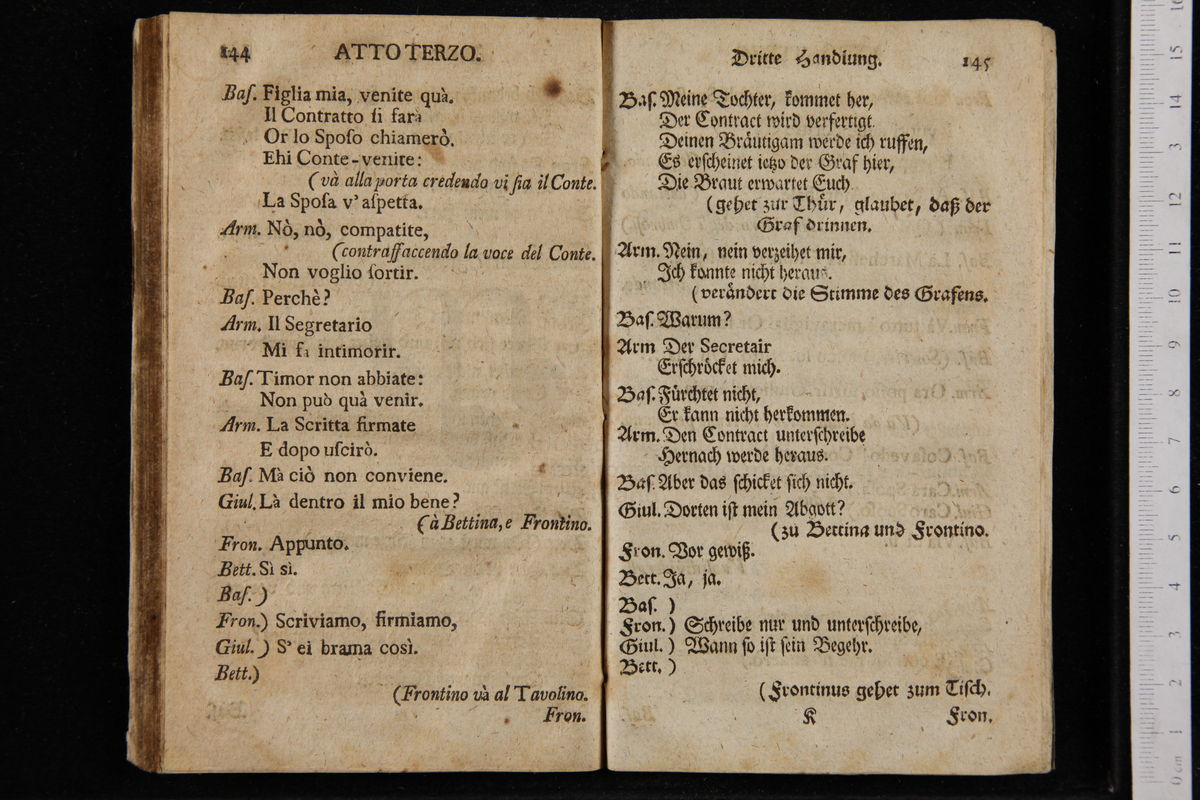 144 ATTO TERZO.
Baſ. Figlia mia, venite quà.
Il Contratto ſi farà
Or lo Spoſo chiamerò.
Ehi Conte-venite:
(và alla porta credendo vi ſia il Conte.
La Spoſa v' aſpetta.
Arm. Nò, nò, compatite,
(contraffaccendo la voce del Conte.
Non voglio ſortir.
Baſ. Perchè?
Arm. Il Segretario
Mi fa intimorir.
Baſ. Timor non abbiate:
Non può quà venir.
Arm. La Scritta firmate
E dopo uſcirò.
Baſ. Mà ciò non conviene.
Giul. Là dentro il mio bene?
(à Bettina, e Frontino.
Fron. Appunto.
Bett. Sì sì.
Baſ. )
Fron.) Scriviamo, firmiamo,
Giul. ) S' ei brama così.
Bett.)
(Frontino và al Tavolino.
Fron.
Dritte Handlung. 145
Baſ. Meine Tochter, kommet her,
Der Contract wird verfertigt.
Deinen Bräutigam werde ich ruffen,
Es erſcheinet ietzo der Graf hier,
Die Braut erwartet Euch
(gehet zur Thür, glaubet, daß der
Graf drinnen.
Arm. Nein, nein verzeihet mir,
Ich konnte nicht heraus.
(verändert die Stimme des Grafens.
Baſ. Warum?
Arm Der Secretair
Erſchröcket mich.
Baſ. Fürchtet nicht,
Er kann nicht herkommen.
Arm. Den Contract unterſchreibe
Hernach werde heraus.
Baſ. Aber das ſchicket ſich nicht.
Giul. Dorten iſt mein Abgott?
(zu Bettina und Frontino.
Fron. Vor gewiß.
Bett. Ja, ja.
Baſ. )
Fron. ) Schreibe nur und unterſchreibe,
Giul. ) Wann ſo iſt ſein Begehr.
Bett. )
(Frontinus gehet zum Tiſch.
K Fron.
0 cm 1 2 3 4 5 6 7 8 9 10 11 12 13 14 15 16